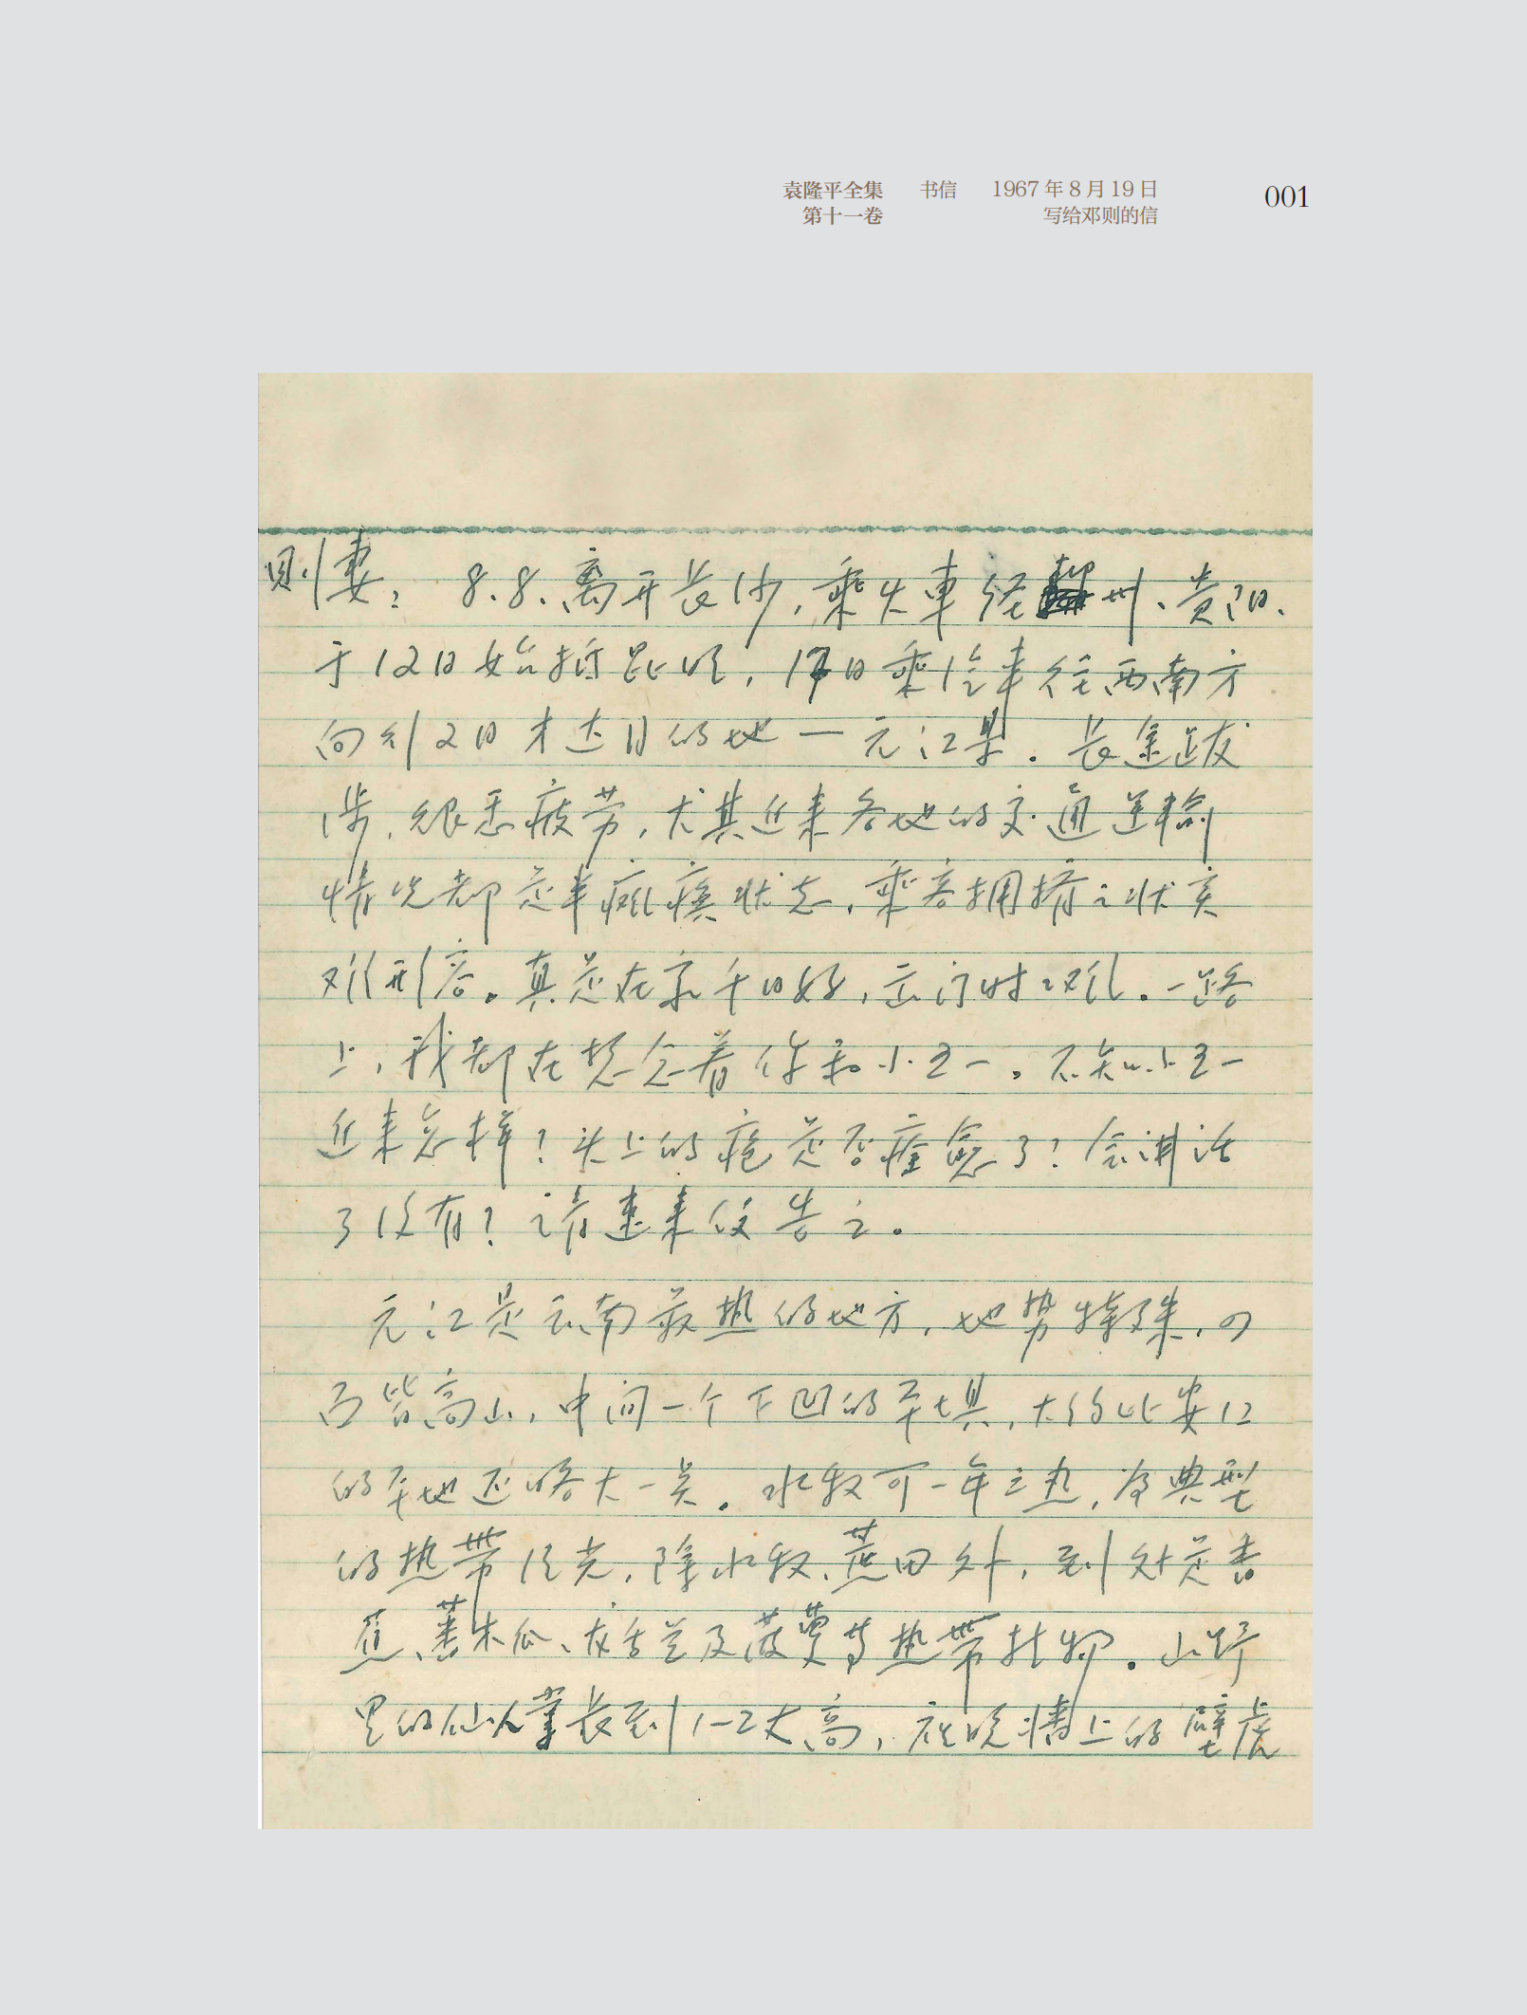 袁隆平全集 书信 1967 年 8 月 19 日 001
第十一卷 写给邓则的信
则妻： 8.8.离开长沙，乘火车经 州、贵阳、
于12日始抵昆明，17日乘汽车往西南方
向行2日才达目的地—元江县。长途跋
涉，很悉疲劳，尤其近来各地的交通运输
情况都是半瘫痪状态，乘客拥挤之状实
难形容。真是在家千日好，出门时时难。一路
上，我都在想念着你和小五一。不知小五一
近来怎样？头上的疱是否痊愈了？会讲话
了没有？请速来信告之。
元江是云南最热的地方，地势特殊，四
面皆高山，中间一个下凹的平坝，大约比安江
的平地还略大一点。水稻可一年三熟，为典型
的热带风光，除水稻、蔗田外，到处是香
蕉、番木瓜、龙舌兰及菠萝等热带植物。山野
里的仙人掌长到1-2丈高，在晚墙上的壁虎